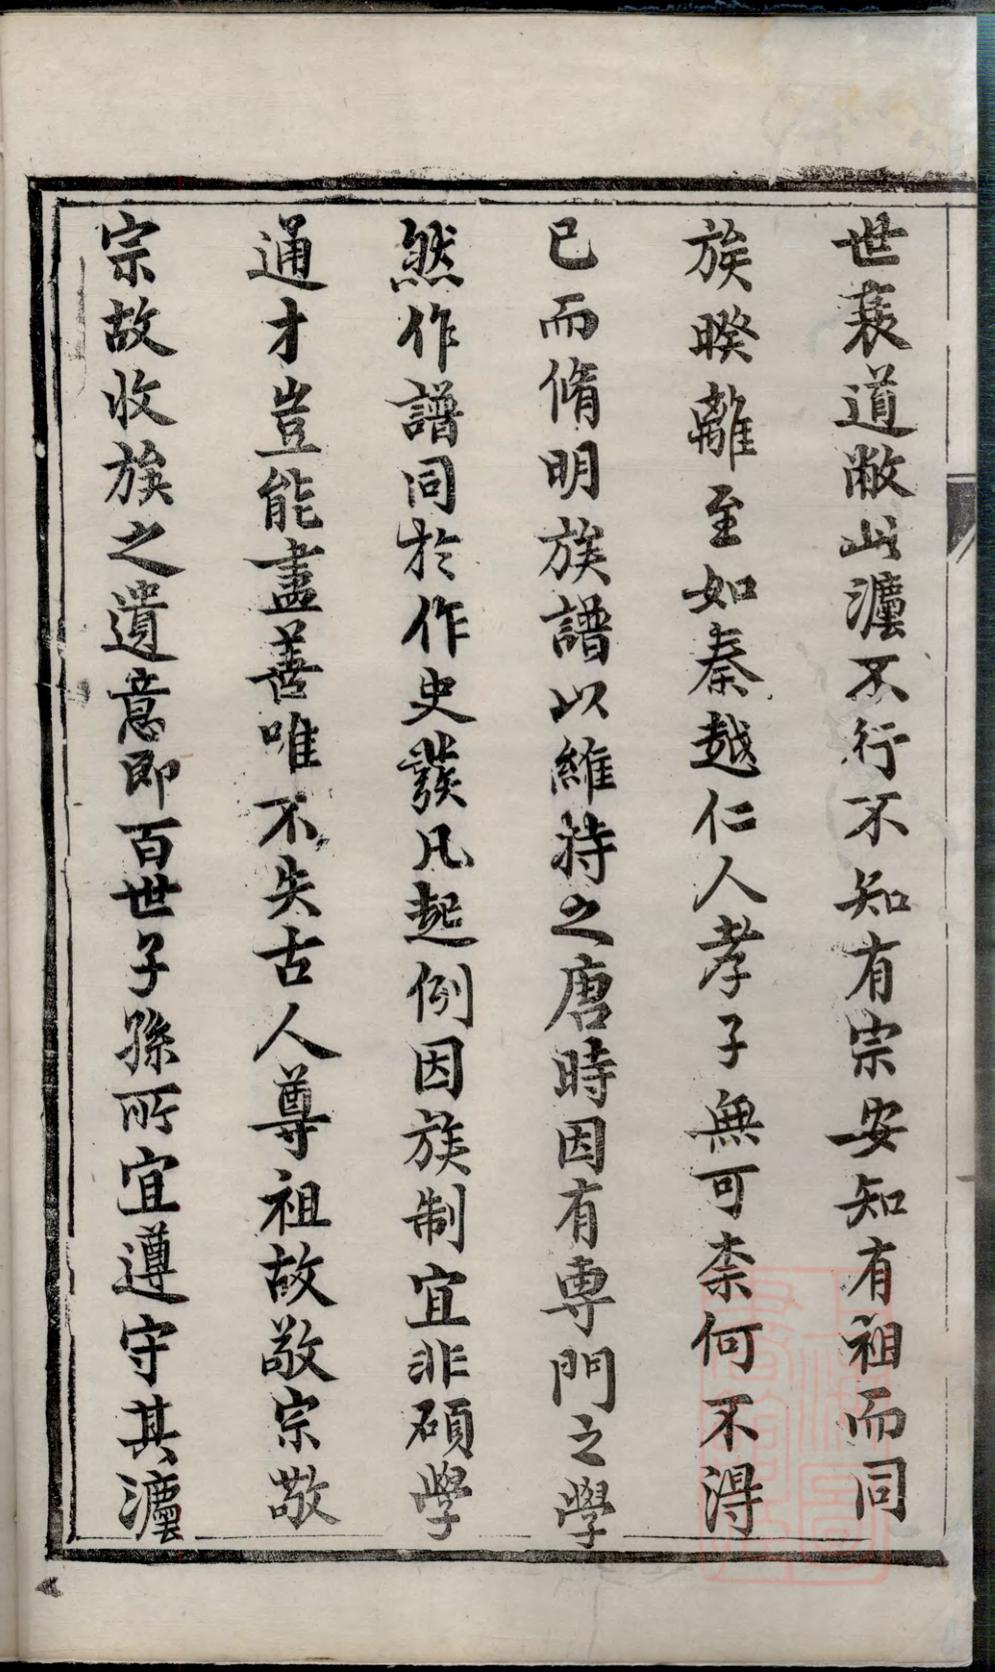 世衰道敝此灋不行不知有宗安知有祖而同
族暌離至如秦越仁人孝子無可柰何不淂
已而脩明族譜以維持之唐時因有專門之學
然作譜同於作史發凡起例因族制宜非碩學
通才豈能盡善唯不失古人尊祖故敬宗敬
宗故收族之遺意即百世子孫所宜遵守其灋